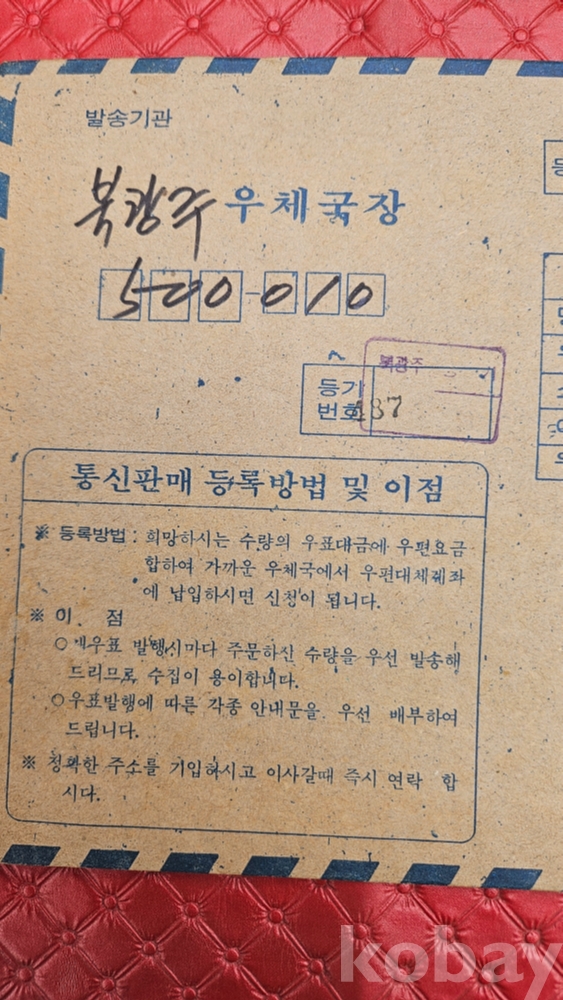 발송기관
북광주 우체국장
500-010
북광주
등기
번호 187
통신판매 등록방법 및 이점
※ 등록방법 : 희망하시는 수량의 우표대금에 우편요금
합하여 가까운 우체국에서 우편대체계좌
에 납입하시면 신청이 됩니다.
※ 이 점
○새우표 발행시마다 주문하신 수량을 우선 발송해
드리므로 수집이 용이합니다.
○우표발행에 따른 각종 안내문을 우선 배부하여
드립니다.
※ 정확한 주소를 기입하시고 이사갈때 즉시 연락 합
시다.
kobay